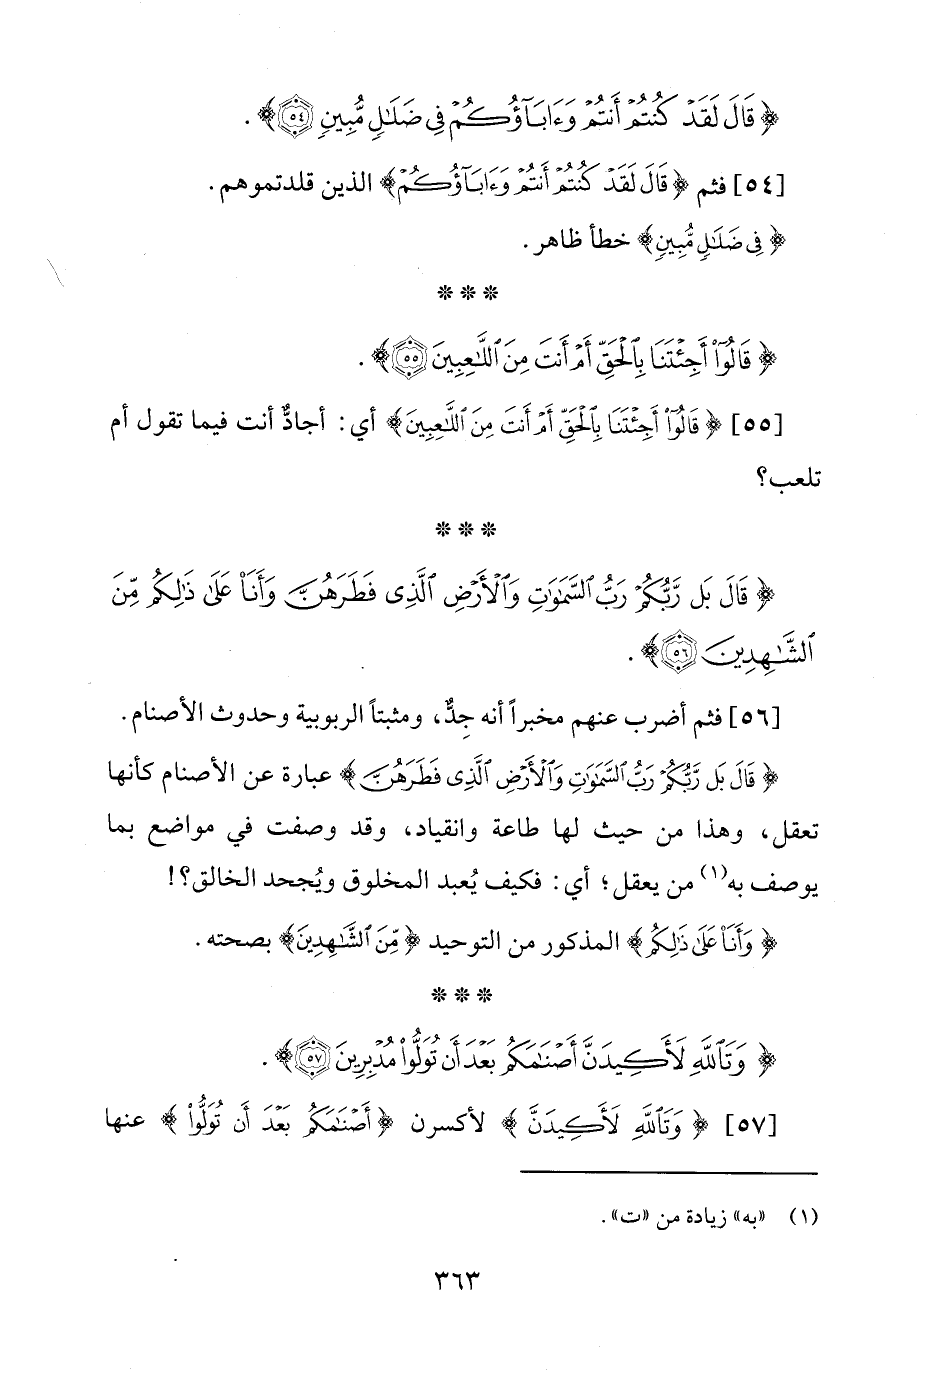 ﴿ قَالَ لَقَدْ كُنتُمْ أَنتُمْ وَءَابَآؤُكُمْ فِى ضَلَٰلٍ مُّبِينٍ ٥٤ ﴾ .
[٥٤] فثم ﴿ قَالَ لَقَدْ كُنتُمْ أَنتُمْ وَءَابَآؤُكُمْ ﴾ الذين قلدتموهم .
﴿ فِى ضَلَٰلٍ مُّبِينٍ ﴾ خطأ ظاهر .
* * *
﴿ قَالُوٓا۟ أَجِئْتَنَا بِٱلْحَقِّ أَمْ أَنتَ مِنَ ٱللَّٰعِبِينَ ٥٥ ﴾ .
[٥٥] ﴿ قَالُوٓا۟ أَجِئْتَنَا بِٱلْحَقِّ أَمْ أَنتَ مِنَ ٱللَّٰعِبِينَ ﴾ أي: أجادٌّ أنت فيما تقول أم
تلعب؟
* * *
﴿ قَالَ بَل رَّبُّكُمْ رَبُّ ٱلسَّمَٰوَٰتِ وَٱلْأَرْضِ ٱلَّذِى فَطَرَهُنَّ وَأَنَا۠ عَلَىٰ ذَٰلِكُم مِّنَ
ٱلشَّٰهِدِينَ ٥٦ ﴾ .
[٥٦] فثم أضرب عنهم مخبراً أنه جدٌّ، ومثبتاً الربوبية وحدوث الأصنام .
﴿ قَالَ بَل رَّبُّكُمْ رَبُّ ٱلسَّمَٰوَٰتِ وَٱلْأَرْضِ ٱلَّذِى فَطَرَهُنَّ ﴾ عبارة عن الأصنام كأنها
تعقل، وهذا من حيث لها طاعة وانقياد، وقد وصفت في مواضع بما
يوصف به(١) من يعقل؛ أي: فكيف يُعبد المخلوق ويُجحد الخالق؟!
﴿ وَأَنَا۠ عَلَىٰ ذَٰلِكُم ﴾ المذكور من التوحيد ﴿ مِّنَ ٱلشَّٰهِدِينَ ﴾ بصحته .
* * *
﴿ وَتَٱللَّهِ لَأَكِيدَنَّ أَصْنَٰمَكُم بَعْدَ أَن تُوَلُّوا۟ مُدْبِرِينَ ٥٧ ﴾ .
[٥٧] ﴿ وَتَٱللَّهِ لَأَكِيدَنَّ ﴾ لأكسرن ﴿ أَصْنَٰمَكُم بَعْدَ أَن تُوَلُّوا۟ ﴾ عنها
(١) «به» زيادة من «ت» .
٣٦٣